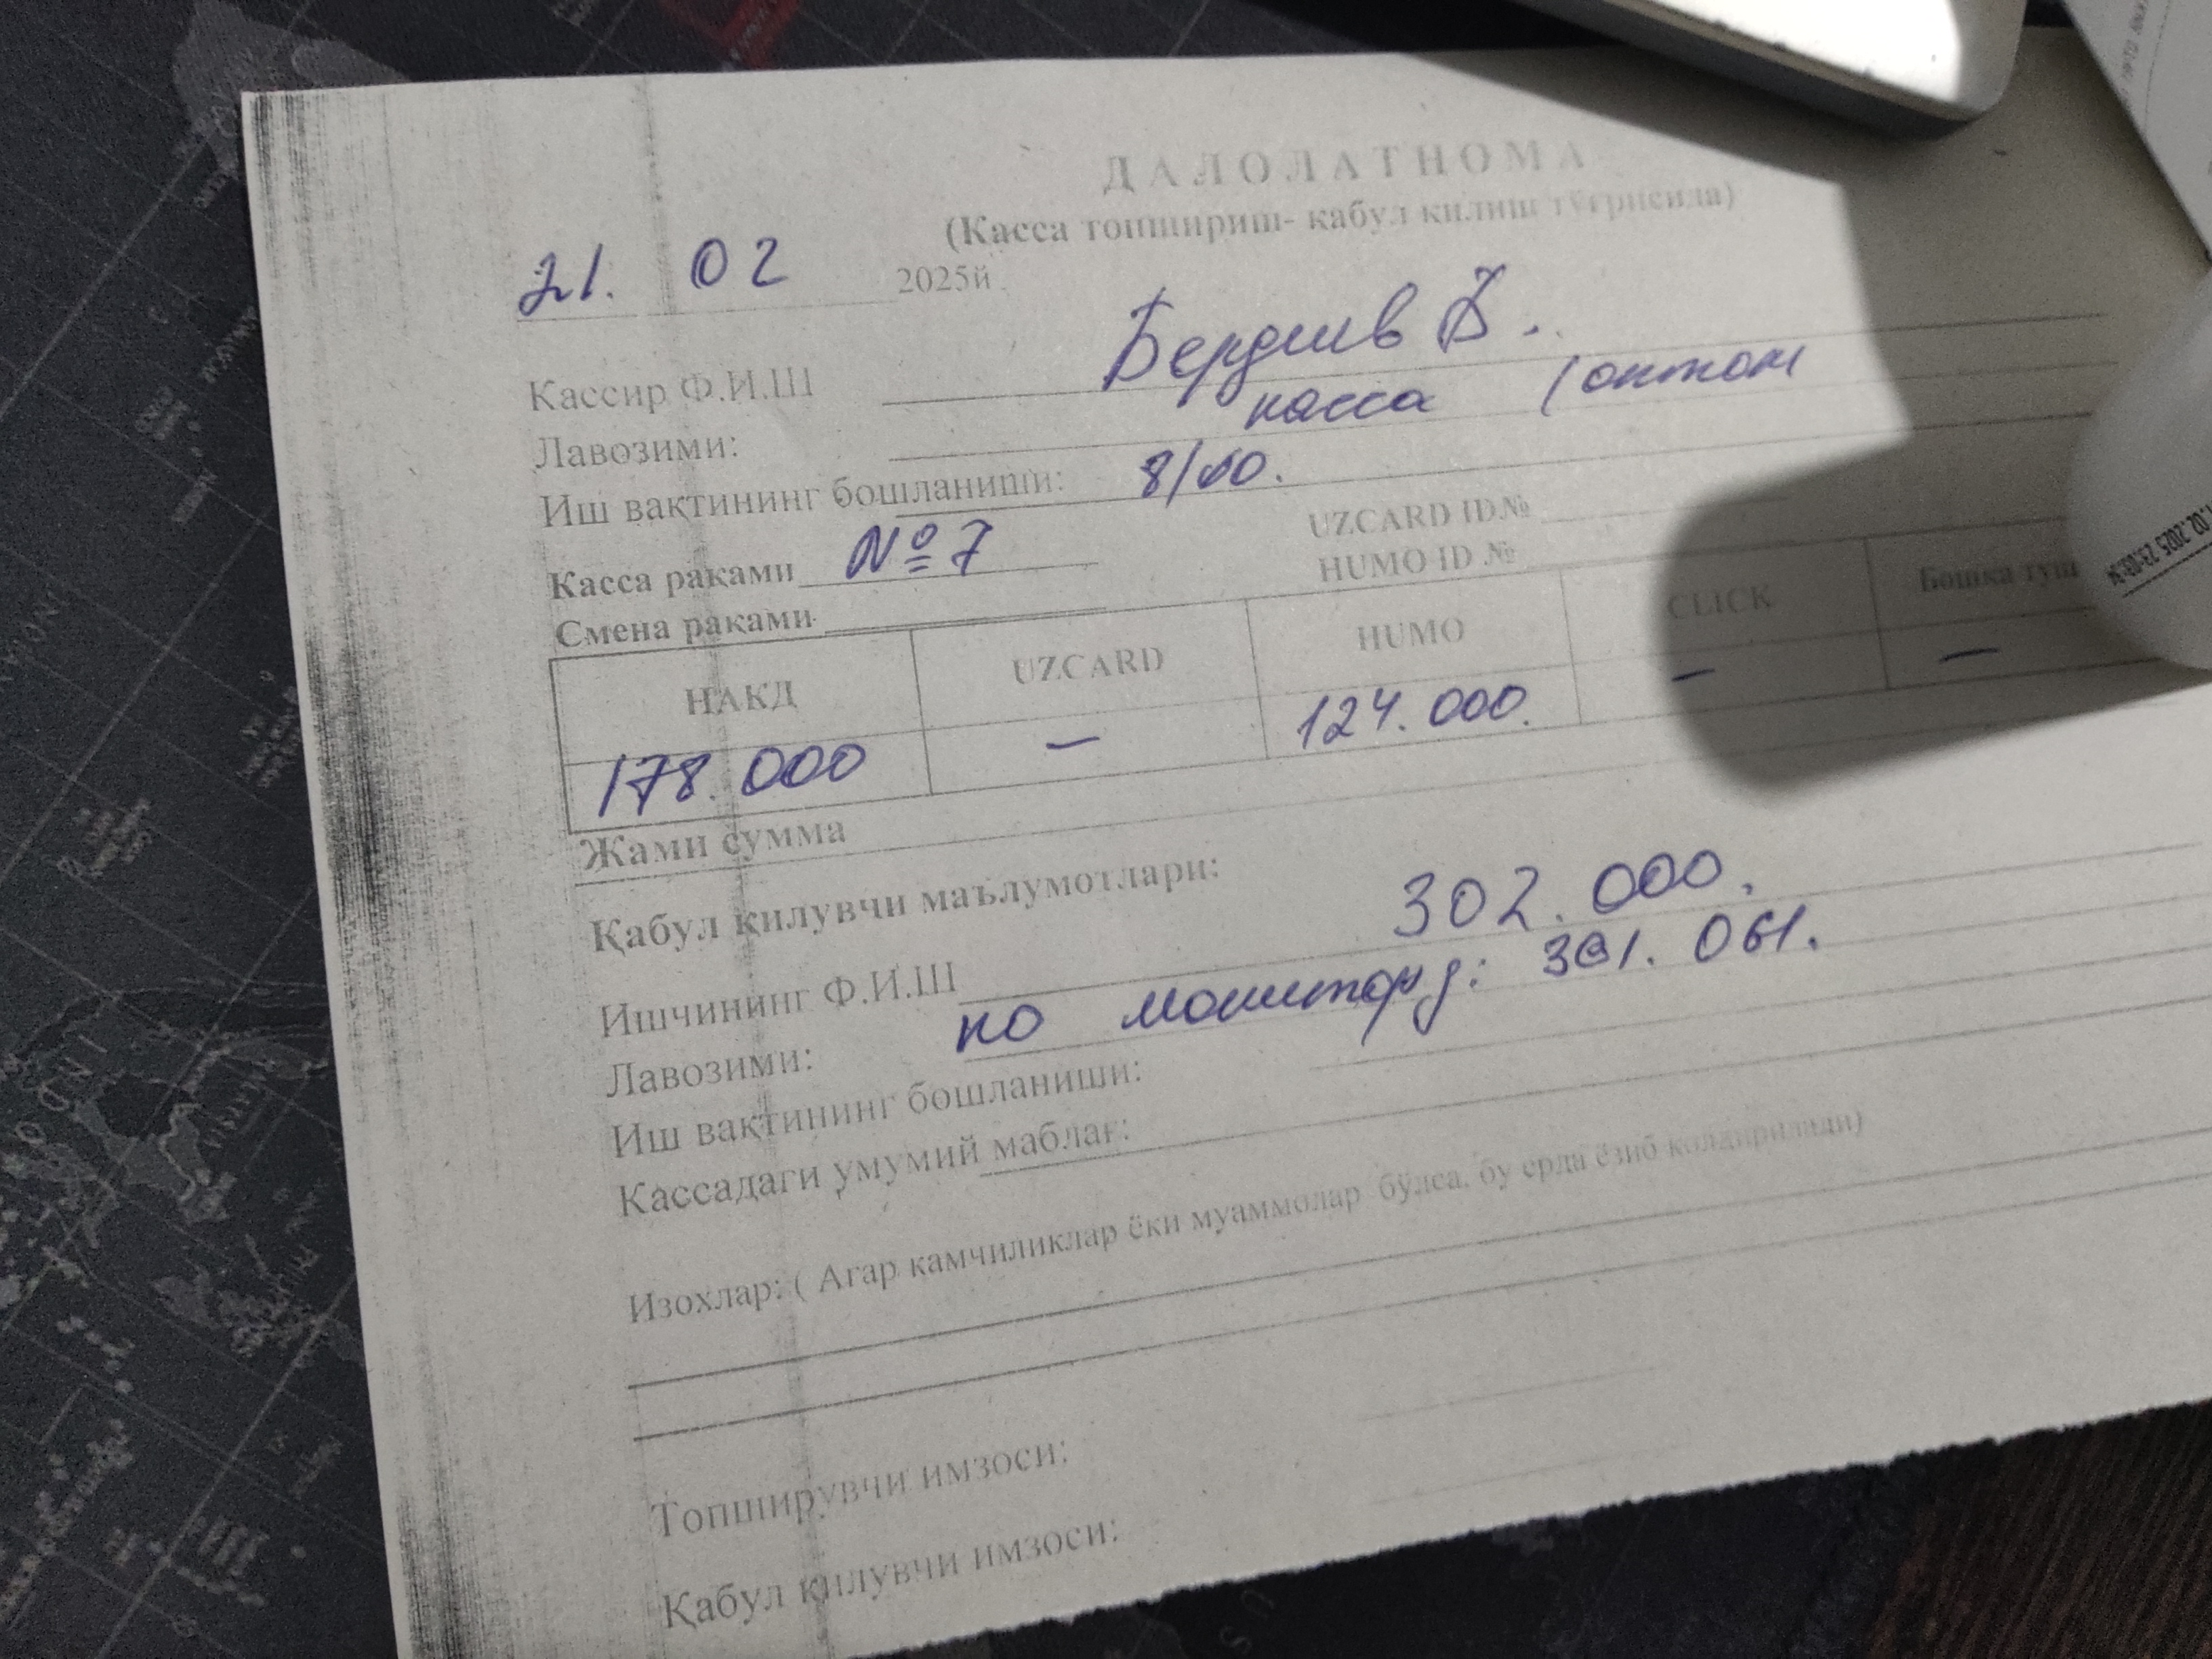 ДАЛОЛАТНОМА
(Касса топшириш- кабул килиш тўғрисида)
21. 02 2025й.
Кассир Ф.И.Ш Бердиев Б.
Лавозими: касса (оптом
Иш вақтининг бошланиши: 8/00.
Касса раками №7 UZCARD ID№
Смена раками HUMO ID №
НАКД UZCARD HUMO CLICK Бошка туш
178.000 — 124.000. — —
Жами сумма
Қабул қилувчи маълумотлари:
302.000.
Ишчининг Ф.И.Ш
Лавозими: по монитору: 301.061.
Иш вақтининг бошланиши:
Кассадаги умумий маблағ:
Изохлар: ( Агар камчиликлар ёки муаммолар бўлса, бу ерда ёзиб колдирилади)
Топширувчи имзоси:
Қабул қилувчи имзоси: